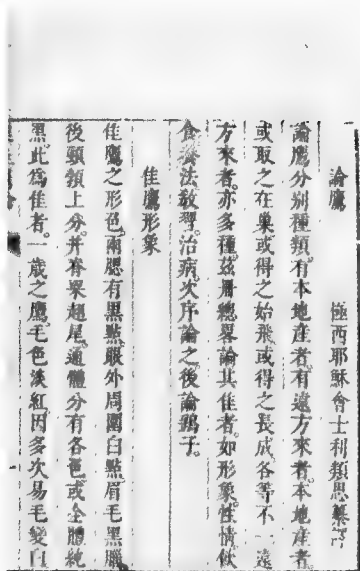 論鷹
極西耶穌會士利類思纂譯
論鷹分別種類有本地產者有遠方來者本地產者
或取之在巢或得之始飛或得之長成各等不一遠
方來者亦多種茲畧論其佳者如形象性情飲
食養法教習治病次序論之後論鷂子
佳鷹形象
佳鷹之形色兩腮有黑點眼外周圍白點眉毛黑腦
後頸領上分并脊翠超尾通體分有各色或全體純
黑此為佳者一歲之鷹毛色淡紅因多次易毛變白